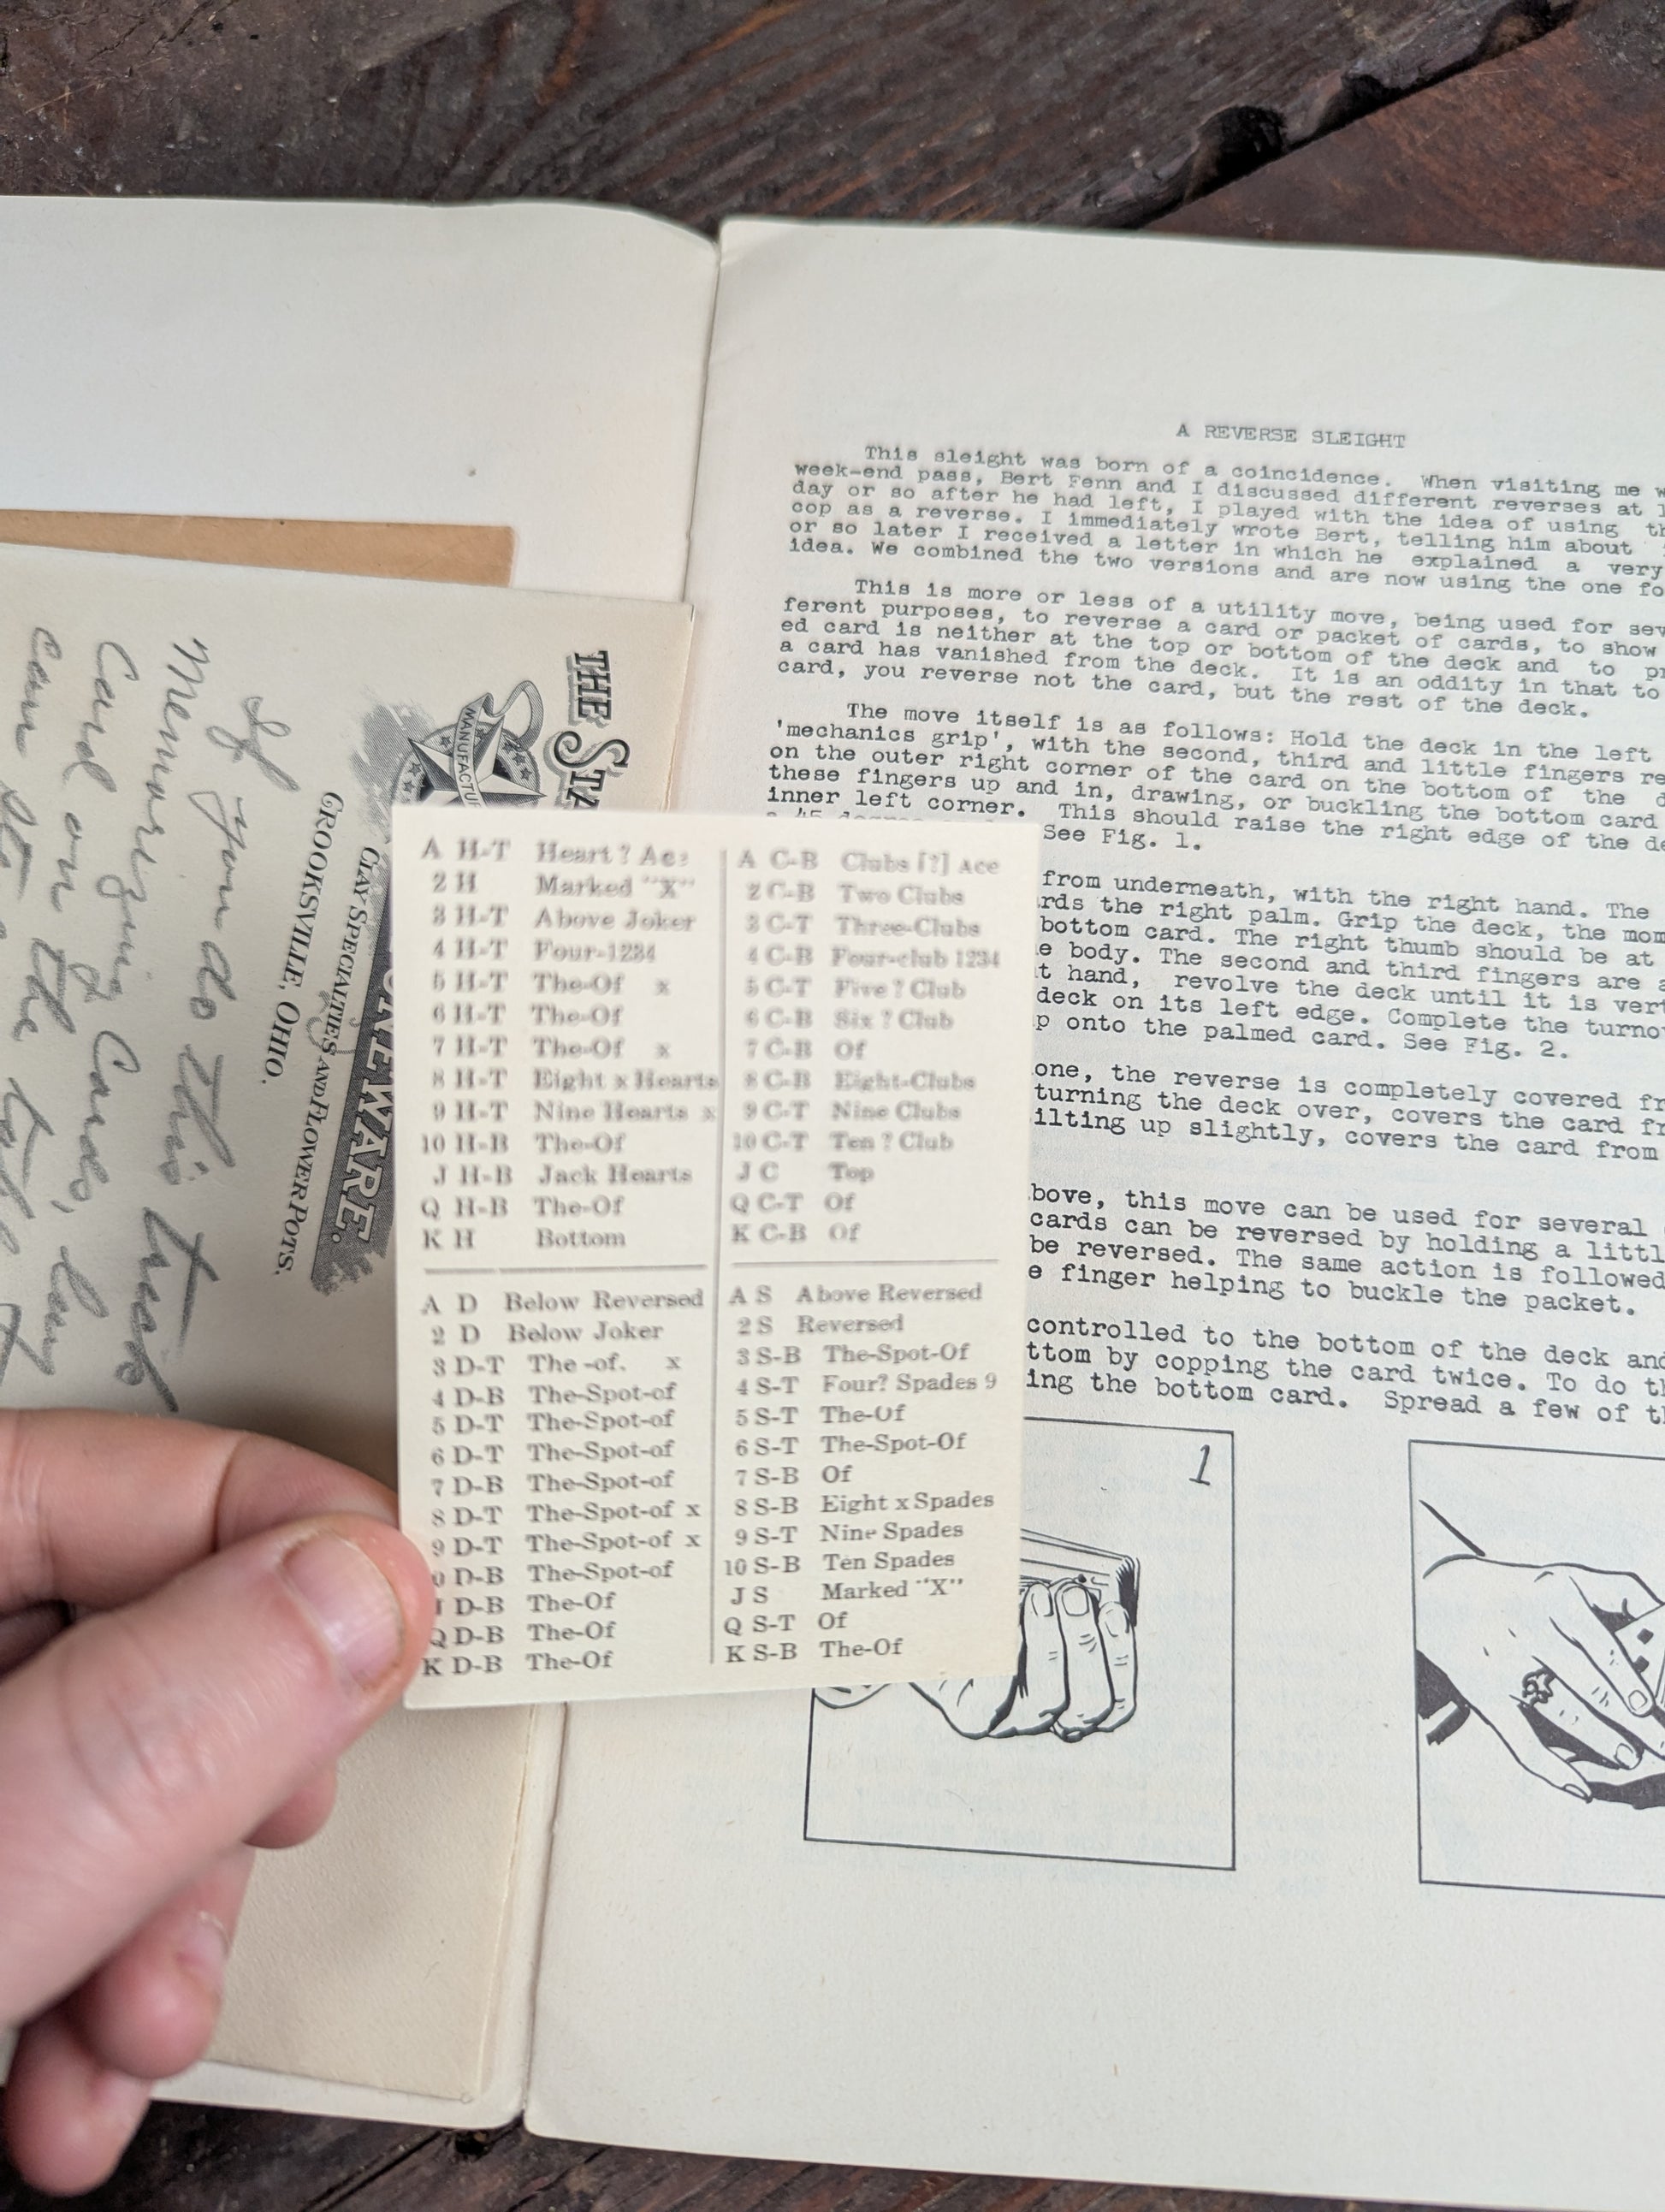 A REVERSE SLEIGHT
This sleight was born of a coincidence. When visiting me
week-end pass, Bert Fenn and I discussed different reverses at
day or so after he had left, I played with the idea of using
cop as a reverse. I immediately wrote Bert, telling him about
or so later I received a letter in which he explained a very
idea. We combined the two versions and are now using the one
This is more or less of a utility move, being used for
ferent purposes, to reverse a card or packet of cards, to show
ed card is neither at the top or bottom of the deck and to
a card has vanished from the deck. It is an oddity in that to
card, you reverse not the card, but the rest of the deck.
The move itself is as follows: Hold the deck in the left
'mechanics grip', with the second, third and little fingers
on the outer right corner of the card on the bottom of the
these fingers up and in, drawing, or buckling the bottom card
inner left corner. This should raise the right edge of the
See Fig. 1.
from underneath, with the right hand. The
rds the right palm. Grip the deck, the
bottom card. The right thumb should be at
e body. The second and third fingers are
t hand, revolve the deck until it is
deck on its left edge. Complete the
p onto the palmed card. See Fig. 2.
one, the reverse is completely covered
turning the deck over, covers the card
ilting up slightly, covers the card from
bove, this move can be used for several
cards can be reversed by holding a
be reversed. The same action is followed
e finger helping to buckle the packet.
controlled to the bottom of the deck and
ttom by copping the card twice. To do
ing the bottom card. Spread a few of
1
THE
MANUFACTU
STONEWARE.
CLAY SPECIALTIES AND FLOWER POTS.
CROOKSVILLE, OHIO.
If you do this trick
Memorizing Cards, lay
Card on the
A H-T Heart ? Ace
2 H Marked "X"
3 H-T Above Joker
4 H-T Four-1234
5 H-T The-Of x
6 H-T The-Of
7 H-T The-Of x
8 H-T Eight x Hearts
9 H-T Nine Hearts x
10 H-B The-Of
J H-B Jack Hearts
Q H-B The-Of
K H Bottom
A C-B Clubs [?] Ace
2 C-B Two Clubs
3 C-T Three-Clubs
4 C-B Four-club 1234
5 C-T Five ? Club
6 C-B Six ? Club
7 C-B Of
8 C-B Eight-Clubs
9 C-T Nine Clubs
10 C-T Ten ? Club
J C Top
Q C-T Of
K C-B Of
A D Below Reversed
2 D Below Joker
3 D-T The -of. x
4 D-B The-Spot-of
5 D-T The-Spot-of
6 D-T The-Spot-of
7 D-B The-Spot-of
8 D-T The-Spot-of x
9 D-T The-Spot-of x
0 D-B The-Spot-of
J D-B The-Of
Q D-B The-Of
K D-B The-Of
A S Above Reversed
2 S Reversed
3 S-B The-Spot-Of
4 S-T Four? Spades 9
5 S-T The-Of
6 S-T The-Spot-Of
7 S-B Of
8 S-B Eight x Spades
9 S-T Nine Spades
10 S-B Ten Spades
J S Marked "X"
Q S-T Of
K S-B The-Of